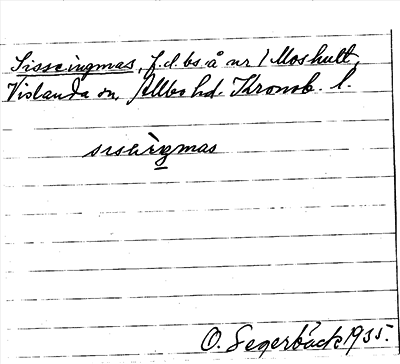 Sisseingmas, f.d. bs. å nr 1 Moshult,
Vislanda sn, Allbo hd. Kronob. l.
O. Segerbäck 1935.